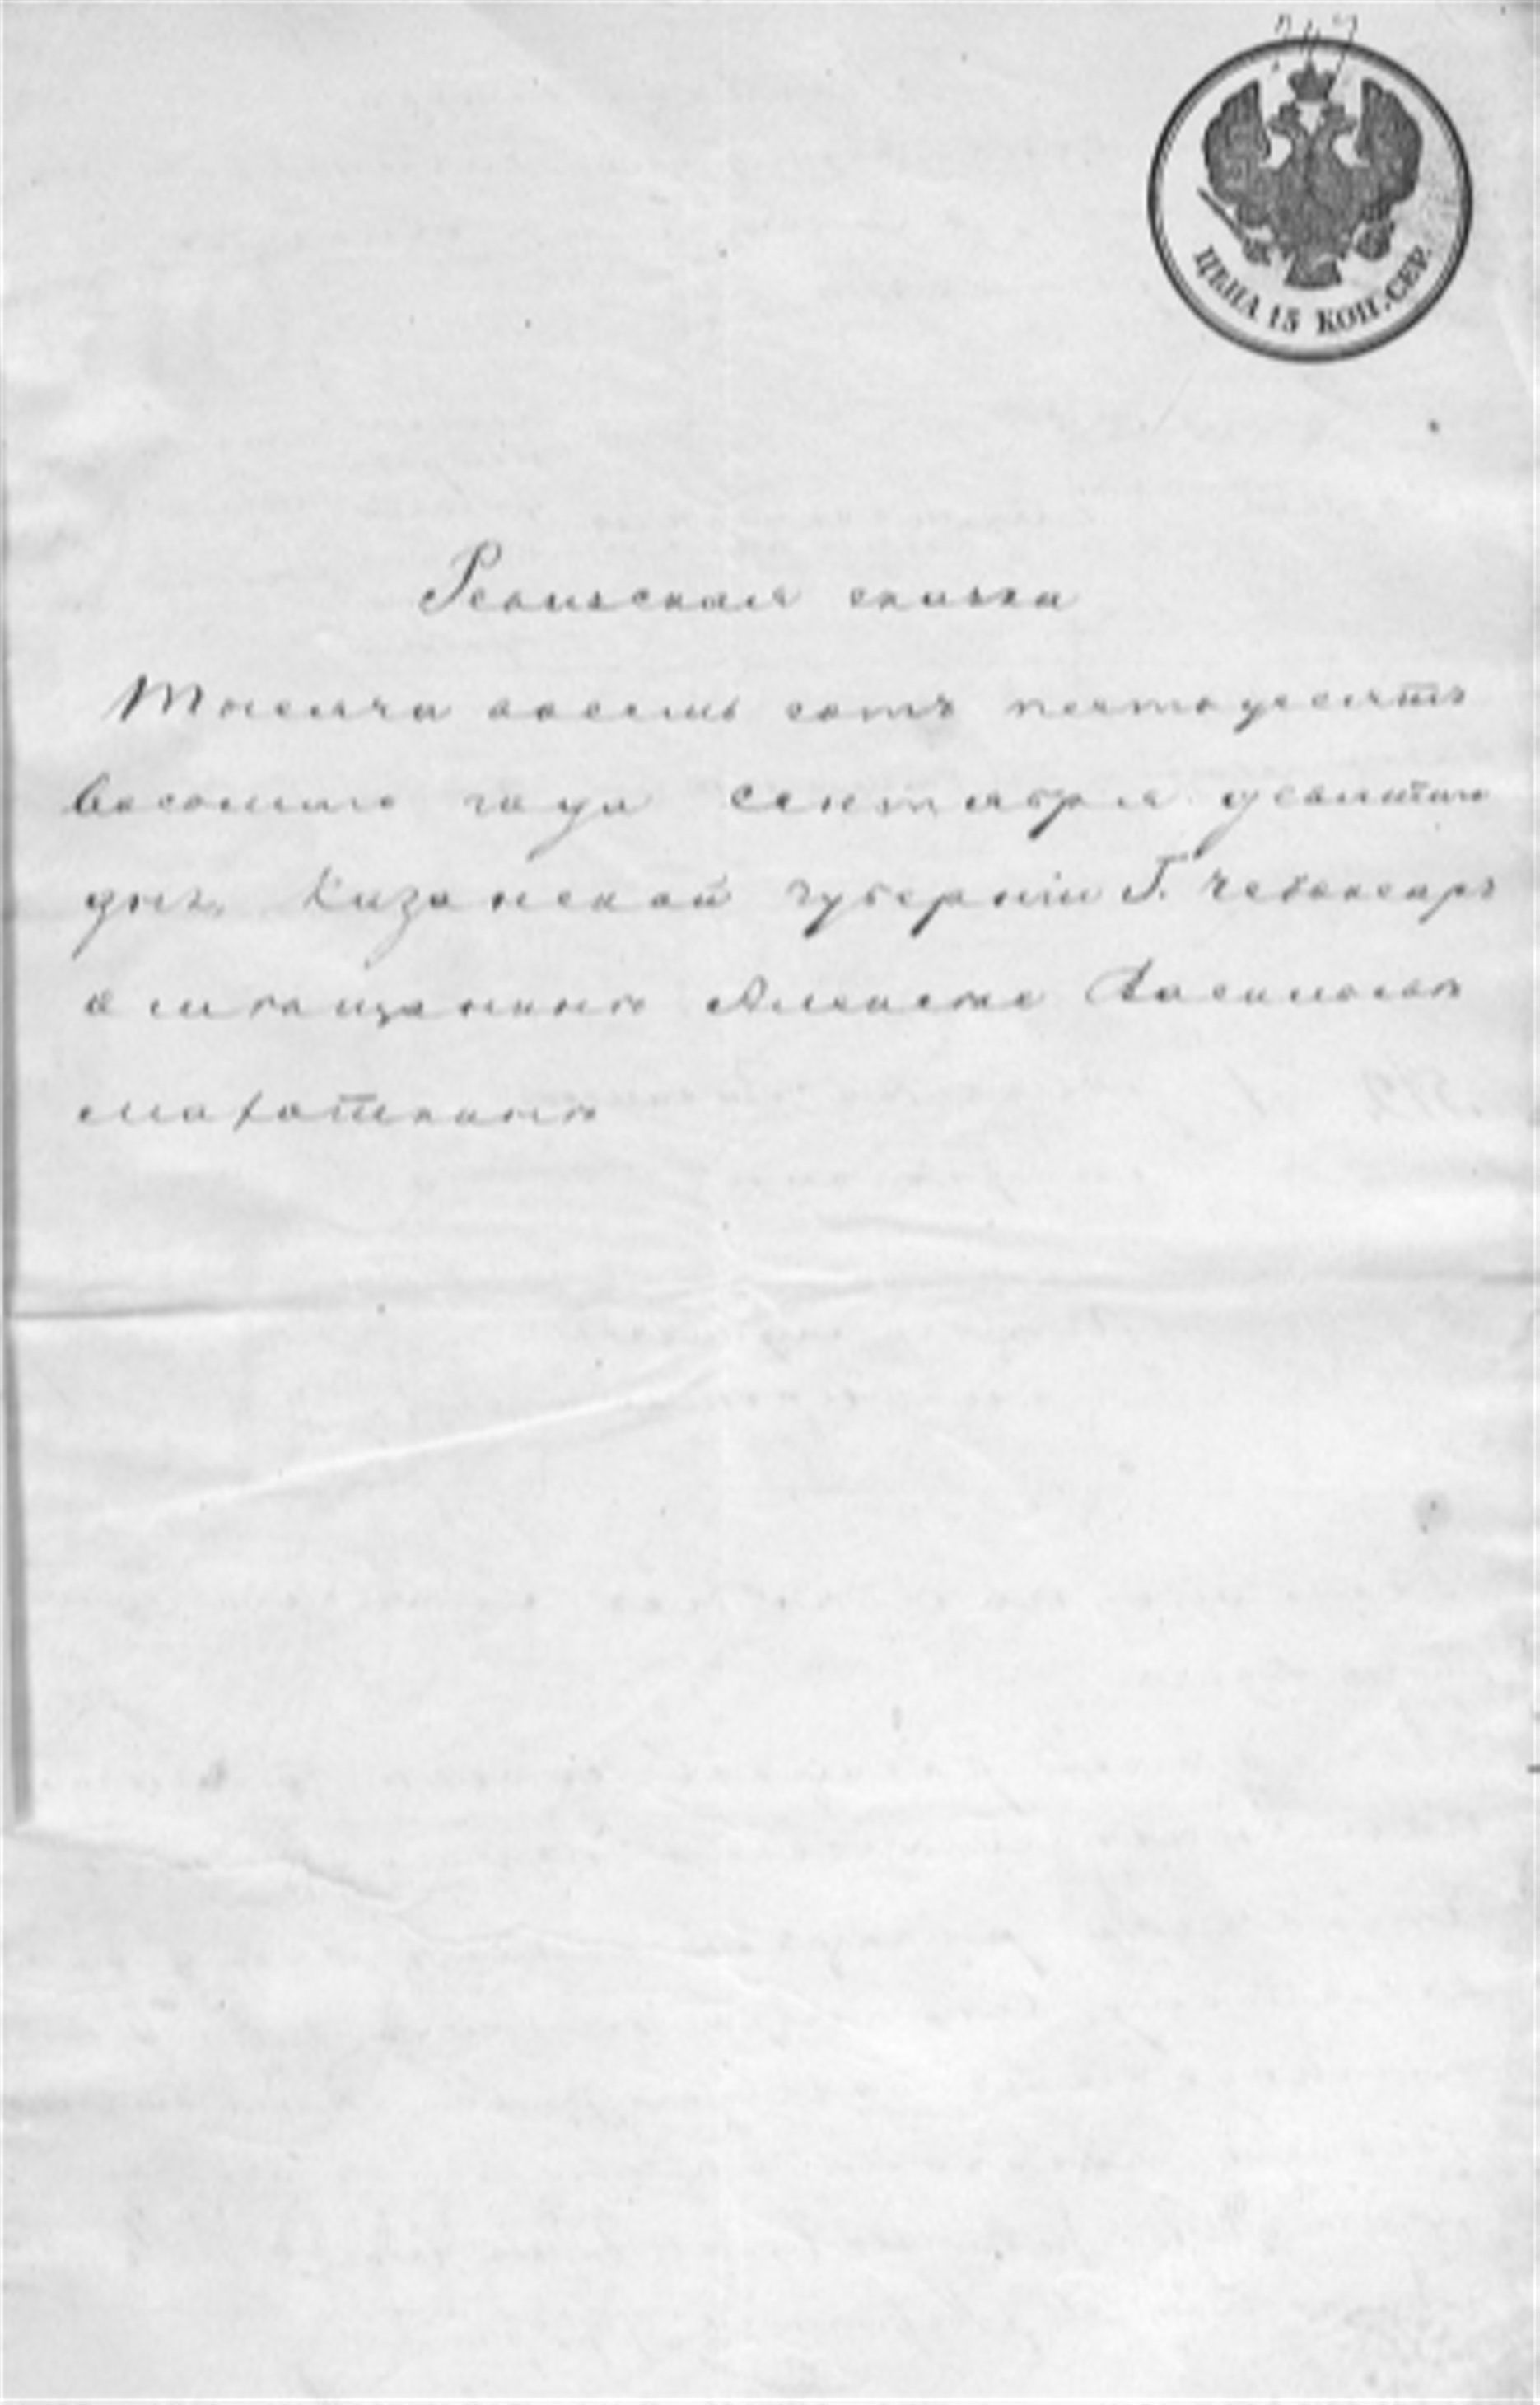 ЦѢНА 15 КОП. СЕР.
Ревизская сказка
Тысяча восемь сотъ пятьдесятъ
восьмаго года сентября девятаго
дня. Казанской губерніи Г. Чебоксаръ
о мѣщанинѣ Алексѣе Васильевѣ